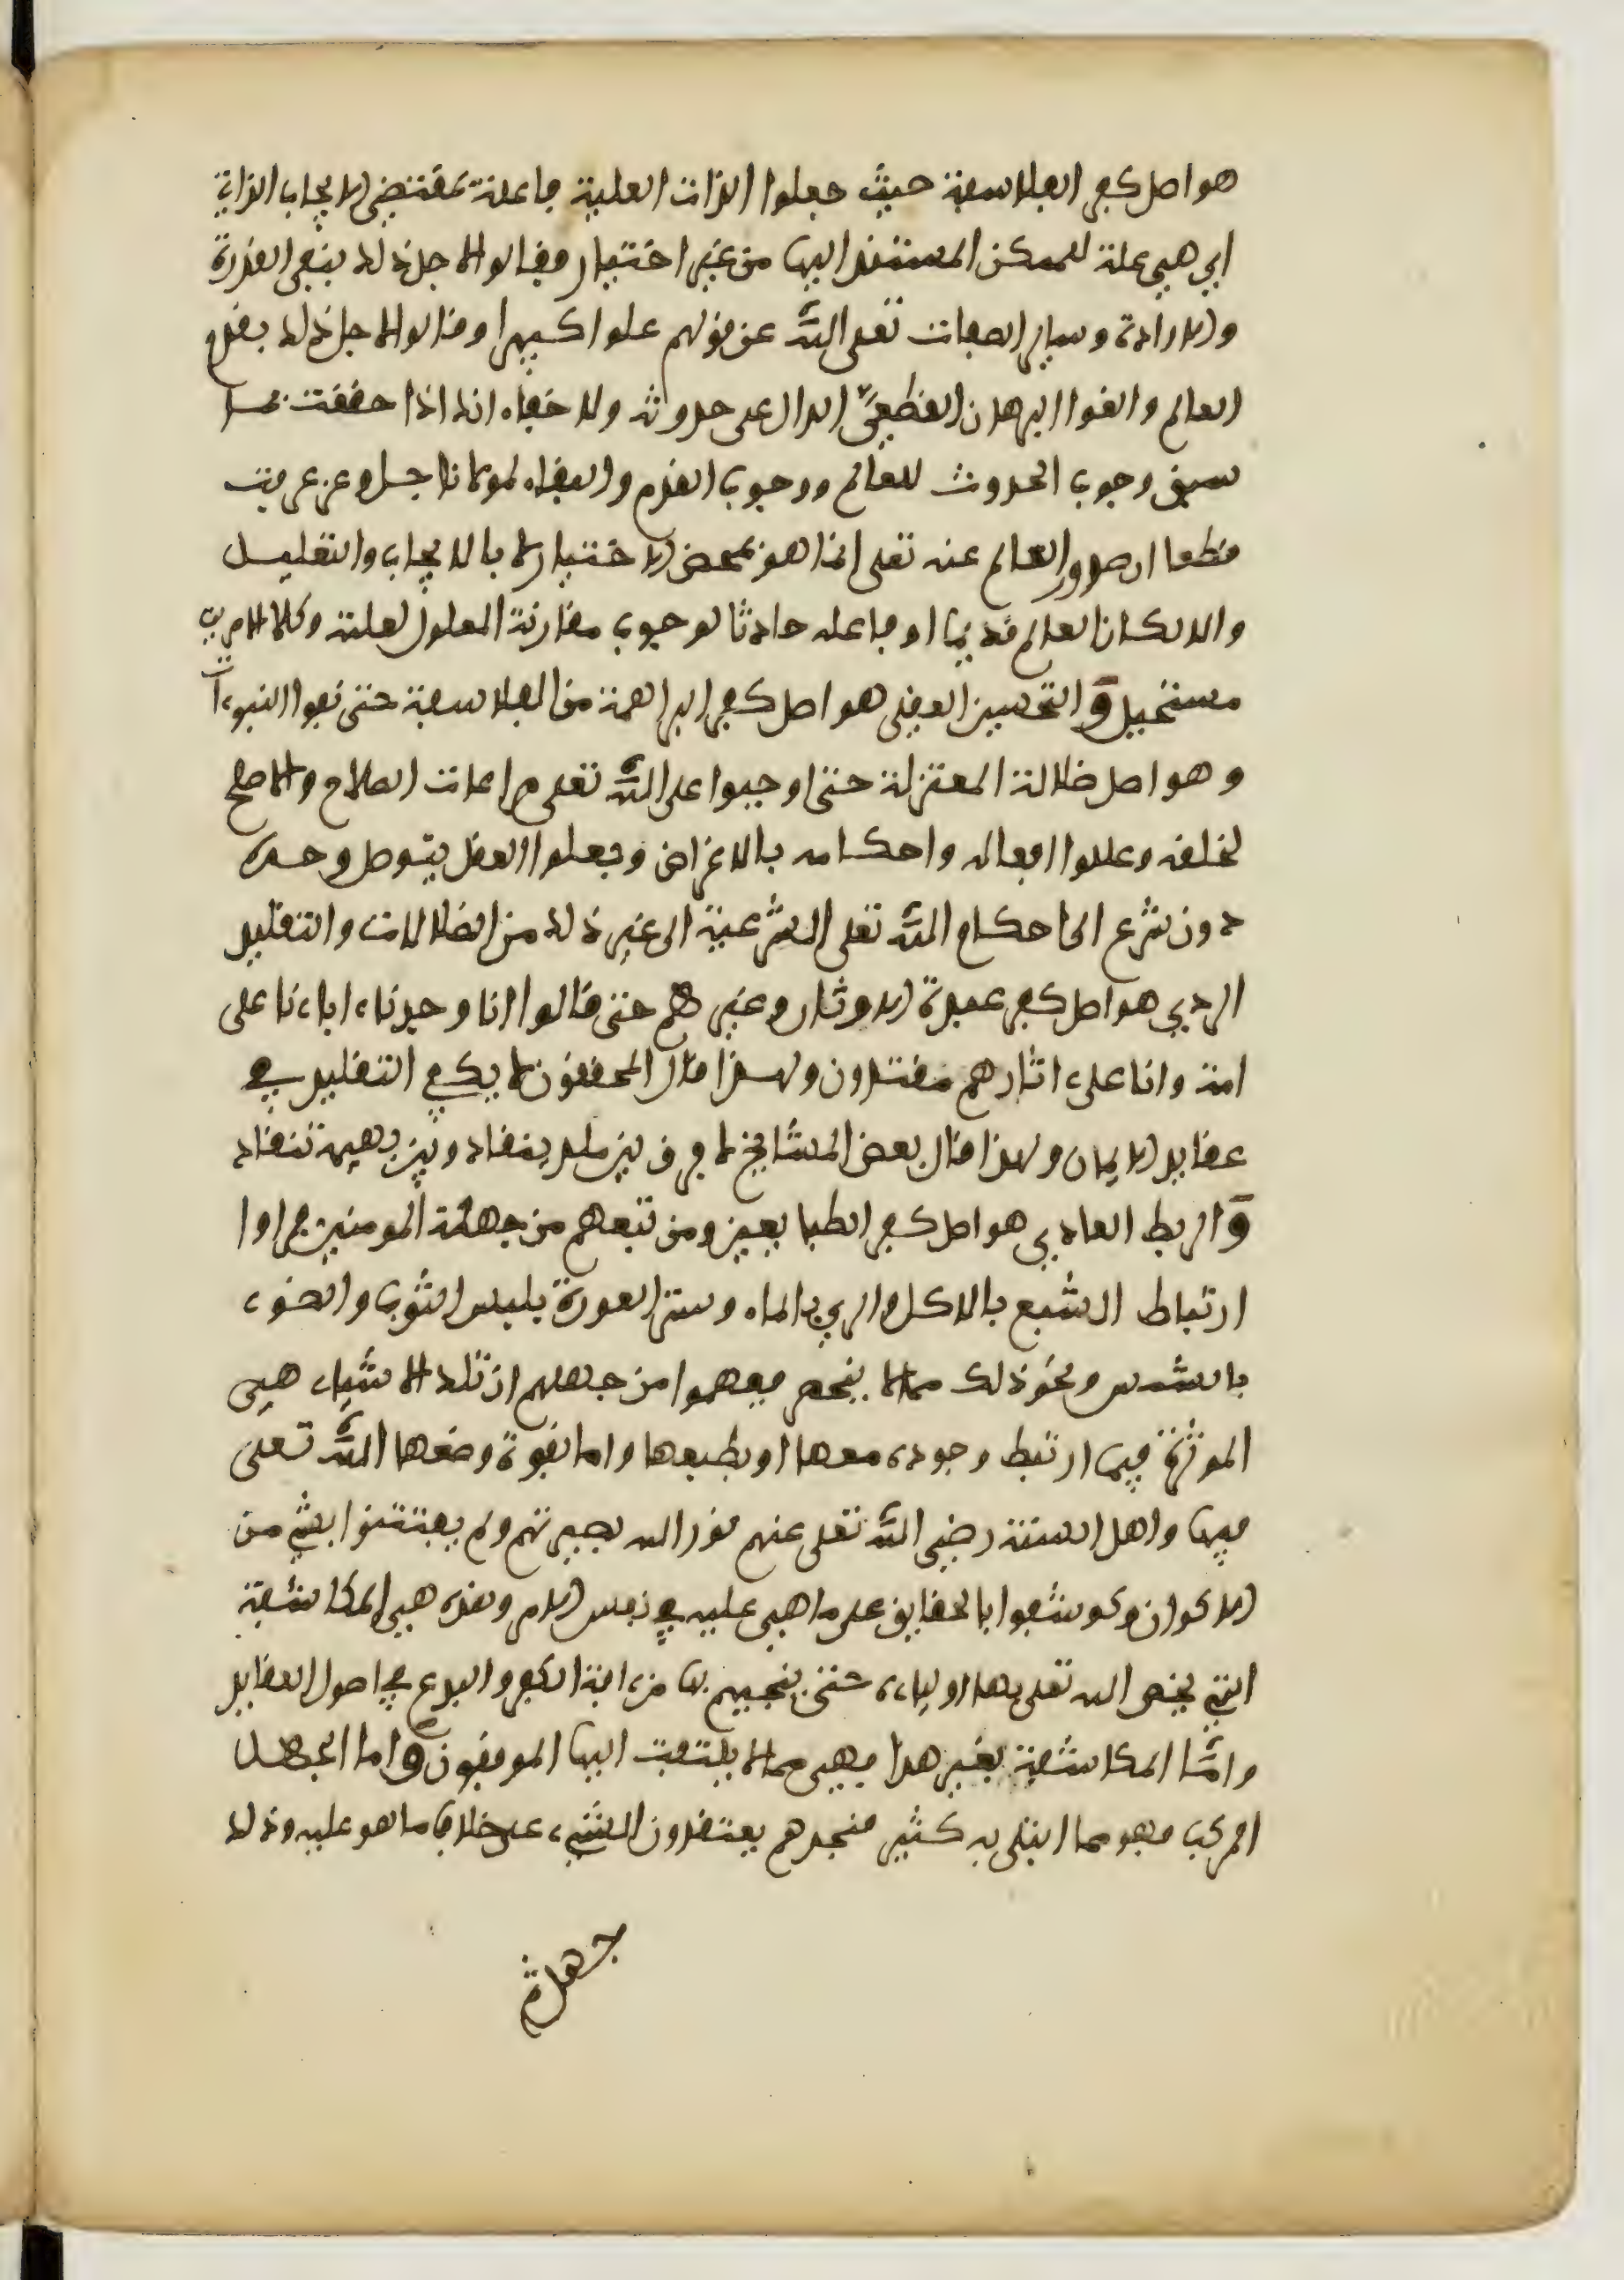 هو اصل كفر الفلاسفة حيث جعلوا الذات العلية فاعلة بمقتضى الايجاب الذاتي
اي هي علة للممكن المستند اليها من غير اختيار فقالوا لاجل ذلك بنفي القدرة
والارادة وساير الصفات تعلى الله عن قولهم علوا كبيرا وقالوا لاجل ذلك بقدم
العالم والغوا البرهان القطعي الدال على حدوثه ولا خفاء انك اذا حققت بما
سبق وجوب الحدوث للعالم ووجوب القدم والبقاء لمولانا جل وعز عرفت
قطعا ان صدور العالم عنه تعلى انما هو بمحض الاختيار لا بالايجاب والتعليل
والا لكان العالم قديما او فاعله حادثا لوجوب مقارنة المعلول لعلته وكلا الامرين
مستحيل و التحسين العقلي هو اصل كفر البراهمة من الفلاسفة حتى نفوا النبوءات
وهو اصل ضلالة المعتزلة حتى اوجبوا على الله تعلى مراعات الصلاح والاصلح
لخلقه وعللوا افعاله واحكامه بالاغراض وجعلوا العقل يتوصل وحده
دون شرع الى احكام الله تعلى الشرعية الى غير ذلك من الضلالات والتقليد
الردي هو اصل كفر عبدة الاوثان وغيرهم حتى قالوا انا وجدنا ءاباءنا على
امة وانا على ءاثارهم مقتدون ولهذا قال المحققون لا يكفي التقليد في
عقايد الايمان ولهذا قال بعض المشايخ لا فرق بين مقلد ينقاد وبين بهيمة تنقاد
و الربط العادي هو اصل كفر الطبايعيين ومن تبعهم من جهلة المومنين فراوا
ارتباط الشبع بالاكل والري بالماء وستر العورة بلبس الثوب والضوء
بالشمس ونحو ذلك مما لا ينحصر ففهموا من جهلهم ان تلك الاشياء هي
الموثرة فيما ارتبط وجوده معها او بطبعها واما بقوة وضعها الله تعلى
فيها واهل السنة رضي الله تعلى عنهم نور الله بصيرتهم ولم يفتتنوا بشي من
الاكوان وكوشفوا بالحقايق على ما هي عليه في نفس الامر وهذه هي المكاشفة
التي يخص الله تعلى بها اولياءه حتى ينجيهم بها من ءافة الكفر والبدع في اصول العقايد
وامّا المكاشفة بغير هذا فهي مما لا يلتفت اليها الموفقون و اما الجهل
المركب فهو مما ابتلي به كثير فتجدهم يعتقدون الشيء على خلاف ما هو عليه وذلك
جهل ثم